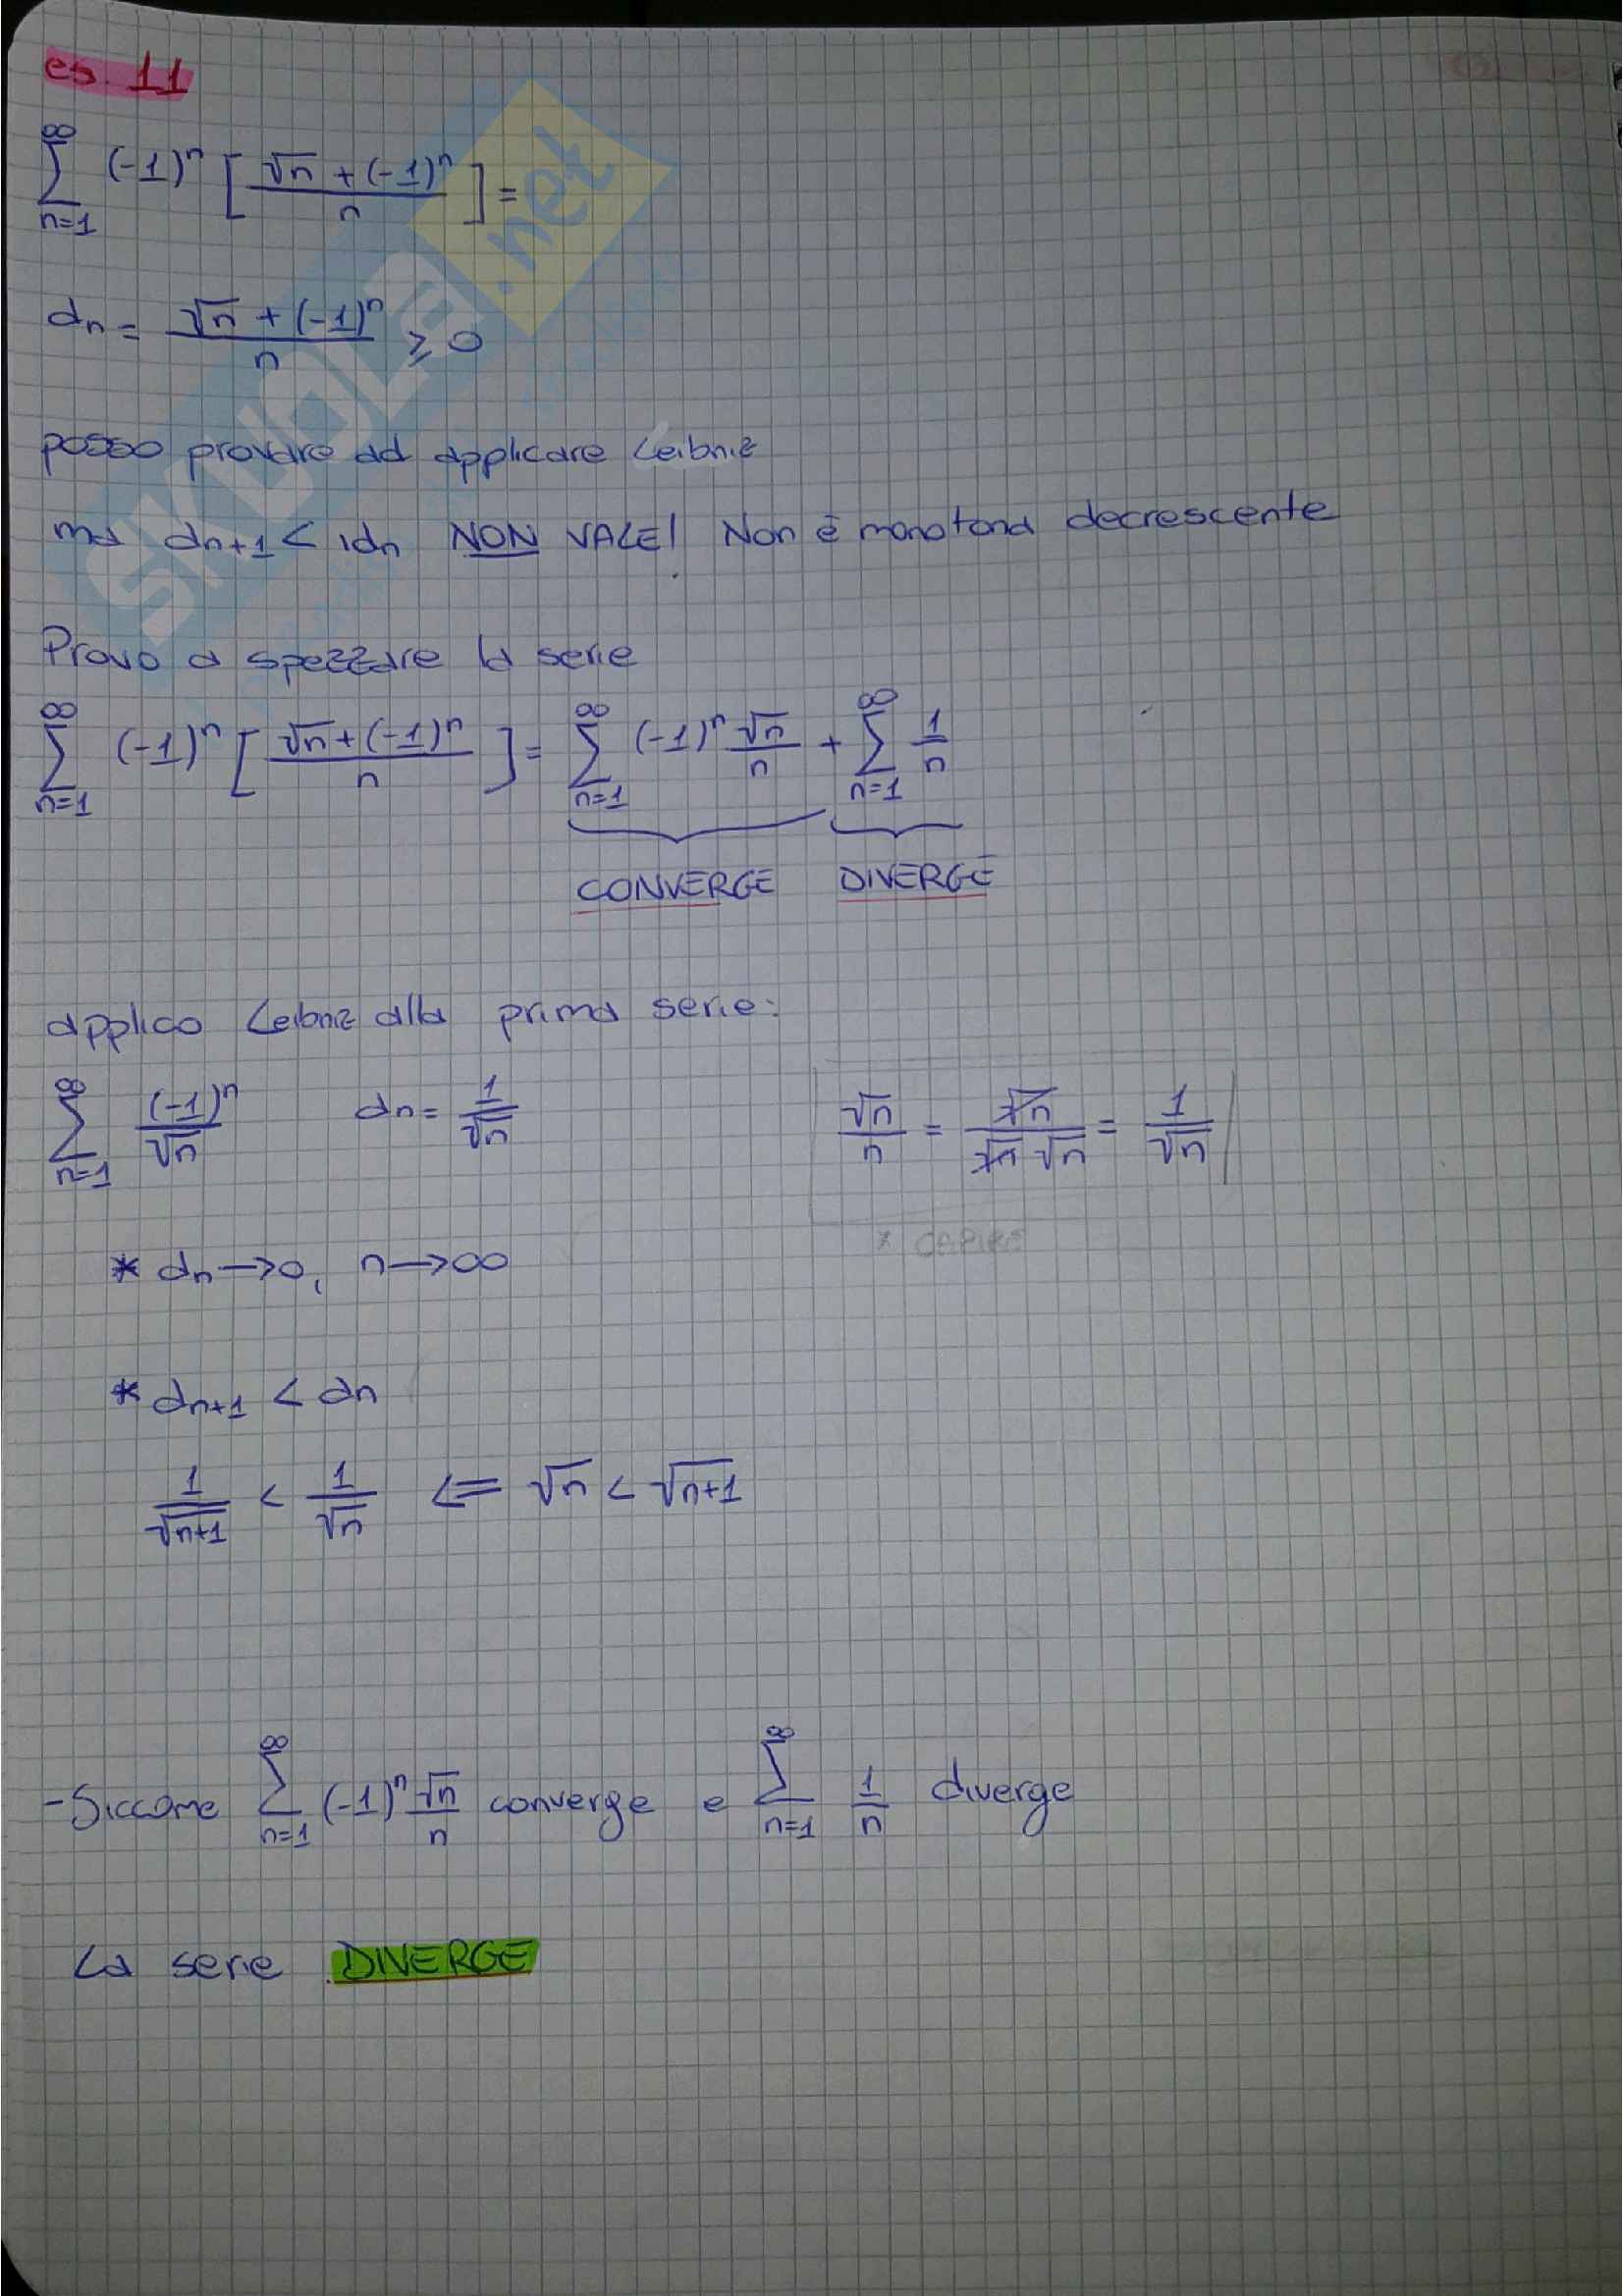 es. 11
∞∑n=1 (-1)^n [ (√n + (-1)^n) / n ] =
an = (√n + (-1)^n) / n ≥ 0
posso provare ad applicare Leibniz
ma an+1 < an NON VALE! Non è monotona decrescente
Provo a spezzare la serie
∞∑n=1 (-1)^n [ (√n + (-1)^n) / n ] = ∞∑n=1 (-1)^n √n / n + ∞∑n=1 1/n
CONVERGE DIVERGE
applico Leibniz alla prima serie:
∞∑n=1 (-1)^n / √n an = 1/√n √n/n = √n / (√n √n) = 1/√n
* CAPIRE
* an → 0, n → ∞
* an+1 < an
1/√n+1 < 1/√n <= √n < √n+1
- Siccome ∞∑n=1 (-1)^n √n / n converge e ∞∑n=1 1/n diverge
La serie DIVERGE
SKUOLA.net